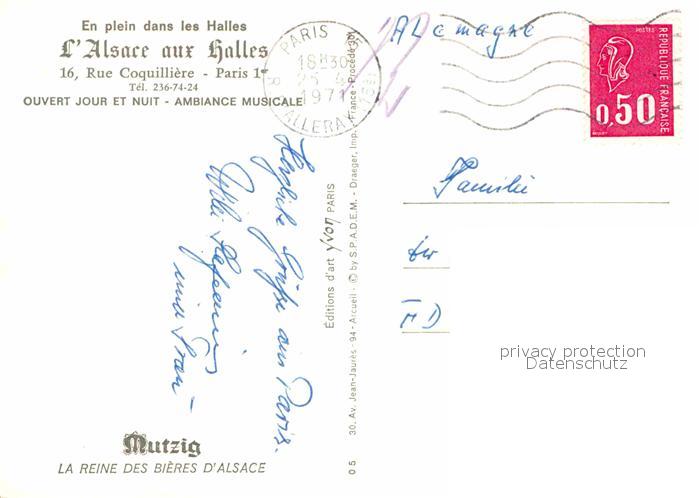 En plein dans les Halles
L'Alsace aux Halles
16, Rue Coquillière - Paris 1er
Tél. 236-74-24
OUVERT JOUR ET NUIT - AMBIANCE MUSICALE
PARIS
18H30
25 - 4
1971
Alemagne
POSTES
REPUBLIQUE FRANÇAISE
0,50
Herzliche Grüße aus Paris.
Willi
und Frau
Editions d'art yvon PARIS
30, Av. Jean-Jaurès - 94 - Arcueil - © by S.P.A.D.E.M. - Draeger, Imp. France - Procédé 301
05
Familie
privacy protection
Datenschutz
Mutzig
LA REINE DES BIÈRES D'ALSACE